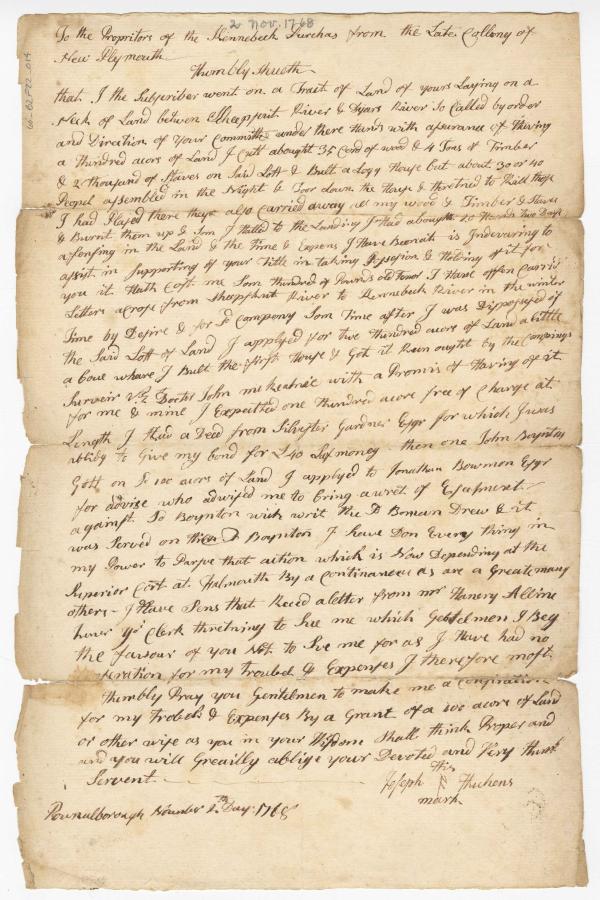 2 Nov. 1768
To the Propritors of the Kennebeck Purchas from the Late Collony of
New Plymouth
Humbly Sheweth
that I the Subscriber went on a Trait of Land of yours Laying on a
Neck of Land betwen Sheepscut River & Dyars River So Called by order
and Diration of Your Committe under there hands with assurance of Having
a Hundred acors of Land I Cutt abought 35 Cord of wood & 4 Tons of Timber
& 2 Thousand of Staves on Said Lott & Built a Logg House but about 30 or 40
Peopel assembled in the Night & Toor down the House & thretned to Kill those
I had Placed there they also Carried away all my wood & Timber & Staves
& Burnt them up & Som I Halled to the Landing I Had abought Hands two Days
in the Land & the Time & Expens I Have Beenatt is Indevouring to
assist in Supporting of your Title in taking Possesion & Holding of it for
you it Hath Cost me Som Hundred of Pounds old Tenor I Have offen Carrid
Letters across from Sheepscut River to Kennebeck River in the winter
Time by Desire & for Sd Company Som Time after I was Disposesed of
the Said Lott of Land I applyed for two Hundred acors of Land a Little
a bove whare I Built the first House & Got it Run ought by the Companys
Survair Doctor John with a Promis of Having of it
for me & mine I Expected one Hundred acors free of Charge at
Length I Had a Deed from Silvester Gardner Esqr for which I was
ablidg to Give my bond for £40 Law money then one John Boynton
Gott on Sd 100 acors of Land I applyed to Jonathan Bowman Esqr
for advise who adwised me to bring a writ of Ejectment
against Sd Boynton wich writ the Sd Boman Drew & it
was Served on Sd Boynton I have Don Every thing in
my Power to Parsue that action which is Now Depending at the
Superior Cort at Falmouth By a Continaneu as are a Greate many
others I Have Sens that Reced a Letter from mr Henery Alline
your Clerk thretning to Sue me which Gentelmen I Beg
the favour of you Not to Sue me for as I Have had no
for my troubel & Expenses I therefore most
Humbly Pray you Gentelmen to make me a
for my trobels & Expenses By a Grant of a 100 acors of Land
or other wise as you in your Wisdom Shall think Proper and
and you will Greatily ablige your Devoted and Very Humbl
Servent
Joseph His Huchens
mark
Pownalborough November 2th Day 1768